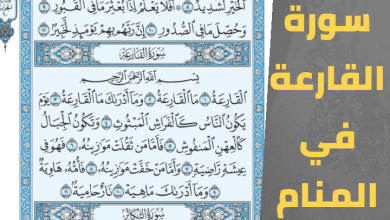 ٱلْخَيْرِ لَشَدِيدٌ ٨ أَفَلَا يَعْلَمُ إِذَا بُعْثِرَ مَا فِي ٱلْقُبُورِ ٩
وَحُصِّلَ مَا فِي ٱلصُّدُورِ ١٠ إِنَّ رَبَّهُم بِهِمْ يَوْمَئِذٍ لَّخَبِيرٌ ١١
سُورَةُ القَارِعَةِ
بِسْمِ ٱللَّهِ ٱلرَّحْمَٰنِ ٱلرَّحِيمِ
ٱلْقَارِعَةُ ١ مَا ٱلْقَارِعَةُ ٢ وَمَا أَدْرَىٰكَ مَا ٱلْقَارِعَةُ ٣ يَوْمَ
يَكُونُ ٱلنَّاسُ كَٱلْفَرَاشِ ٱلْمَبْثُوثِ ٤ وَتَكُونُ ٱلْجِبَالُ
كَٱلْعِهْنِ ٱلْمَنفُوشِ ٥ فَأَمَّا مَن ثَقُلَتْ مَوَٰزِينُهُ ٦ فَهُوَ فِي
عِيشَةٍ رَّاضِيَةٍ ٧ وَأَمَّا مَنْ خَفَّتْ مَوَٰزِينُهُ ٨ فَأُمُّهُ هَاوِيَةٌ
٩ وَمَا أَدْرَىٰكَ مَا هِيَهْ ١٠ نَارٌ حَامِيَةٌ ١١
سُورَةُ التَّكَاثُرِ
سورة
القارعة
في
المنام